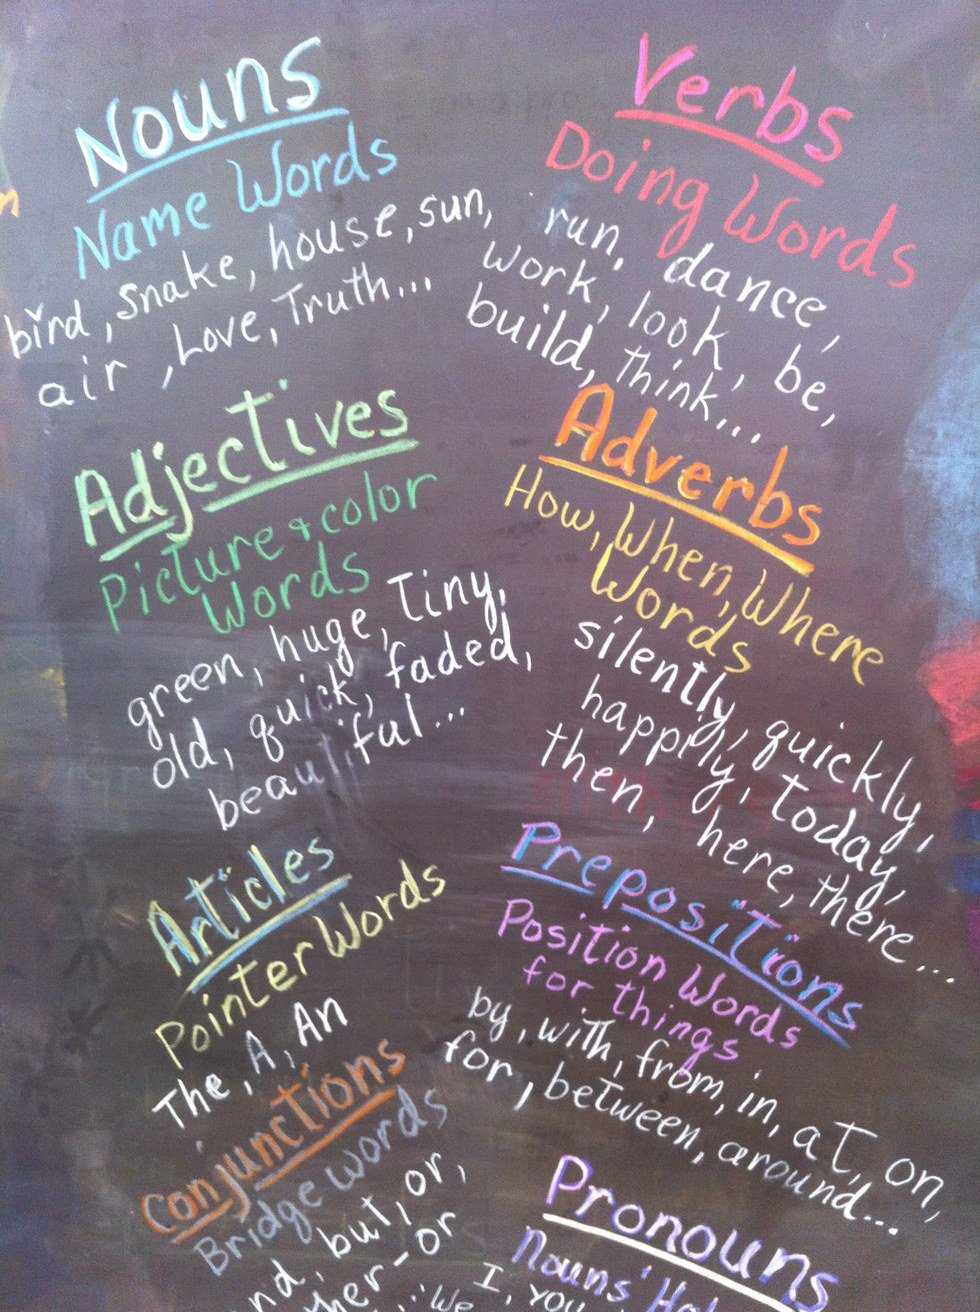 Nouns
Name Words
bird, snake, house, sun,
air, Love, Truth...
Verbs
Doing Words
run, dance,
work, look, be,
build, think...
Adjectives
Picture & color
Words
green, huge, Tiny,
old, quick, faded,
beautiful...
Adverbs
How, When, Where
Words
silently, quickly,
happily, Today,
then, here, there...
Articles
Pointer Words
The, A, An
Prepositions
Position Words
for things
by, with, from, in, at, on,
for, between, around...
Conjunctions
Bridge words
but, or,
or
Pronouns
Nouns'
I, you
"We